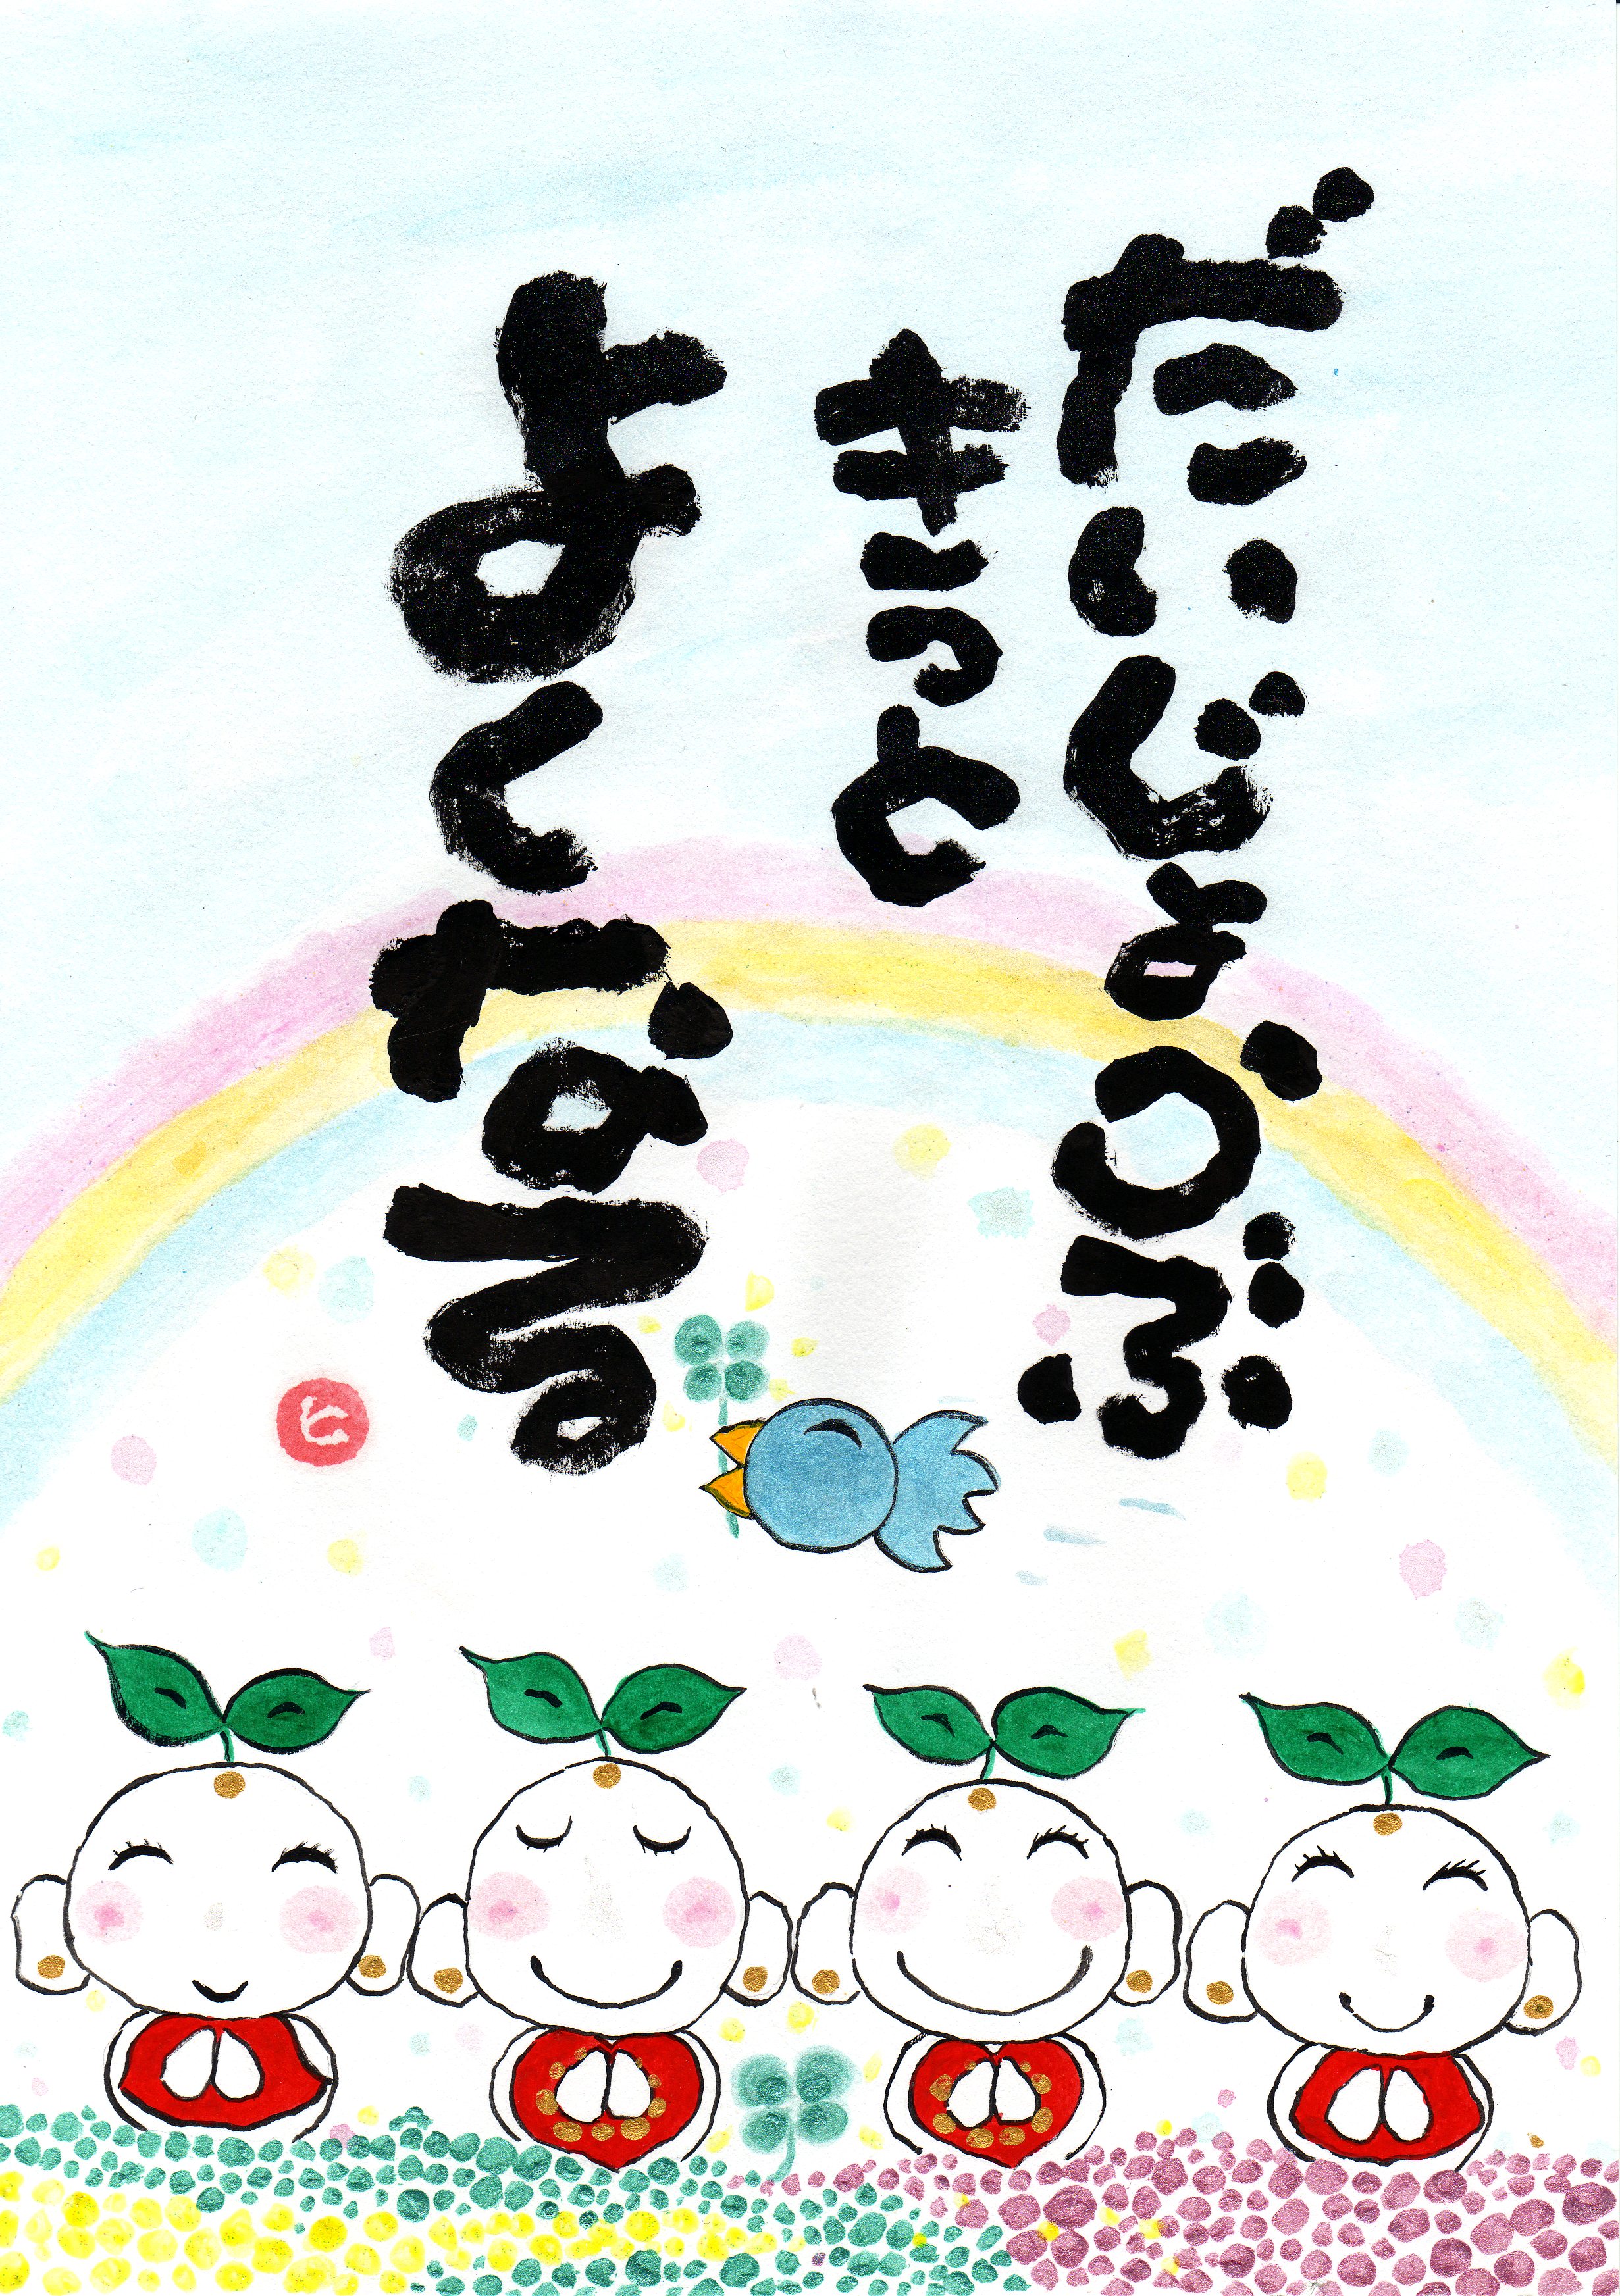 だいじょうぶ
きっと
よくなる
と